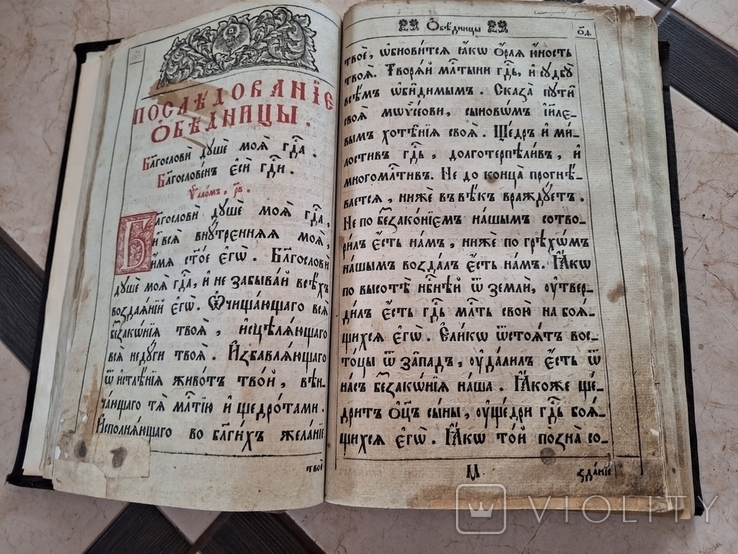 ПОСЛѢДОВАНЇЕ
ѺБѢДНИЦЫ.
Благослови́ дꙋше моѧ̀ гдⷭ҇а.
Благословенъ є҆сѝ гдⷭ҇и.
Ѱало́мъ, рв҃.
Благослови́ дꙋше моѧ̀ гдⷭ҇а,
и҆ всѧ̀ внꙋтреннѧѧ моѧ̀,
и҆мѧ ст҃ое є҆гѡ̀. Благослови́
дꙋше моѧ̀ гдⷭ҇а, и҆ не забыва́й всѣ́хъ
воздаѧ́нїй є҆гѡ̀. Ѡ҆чища́ющаго всѧ̀
беззакѡ́нїѧ твоѧ̀, и҆сцѣлѧ́ющаго
всѧ̀ недꙋ́ги твоѧ̀. И҆збавлѧ́ющаго
ѿ и҆стлѣ́нїѧ живо́тъ тво́й, вѣн-
ча́ющаго тѧ̀ млⷭ҇тїю и҆ щедро́тами.
И҆сполнѧ́ющаго во бл҃ги́хъ жела́нїе
твоѐ
Ѻ҆бѣ́дницы
ѻ҃д
твоѐ, ѡ҆бнови́тсѧ ꙗ҆́кѡ ѻ҆́рлѧ ю҆́ность
твоѧ̀. Творѧ́й млⷭ҇тыни гдⷭ҇ь, и҆ сꙋдбꙋ̀
всѣ́мъ ѡ҆би́димымъ. Сказа̀ пꙋтѝ
своѧ̀ мѡѷсе́ови, сыновѡ́мъ і҆и҃ле-
вымъ хотѣ́нїѧ своѧ̀. Ще́дръ и҆ ми́-
лостивъ гдⷭ҇ь, долготерпѣли́въ, и҆
многомлⷭ҇тивъ. Не до конца̀ прогнѣ́-
ваетсѧ, нижѐ въ вѣ́къ враждꙋ́етъ.
Не по беззако́нїємъ на́шымъ сотво-
ри́лъ є҆́сть на́мъ, нижѐ по грѣхѡ́мъ
на́шымъ возда́лъ є҆́сть на́мъ. Ꙗ҆́кѡ
по высотѣ̀ нбⷭ҇нѣй ѿ землѝ, ᲂу҆твер-
ди́лъ є҆́сть гдⷭ҇ь млⷭ҇ть свою̀ на боѧ́-
щихсѧ є҆гѡ̀. Е҆ли́кѡ ѿстоѧ́тъ вос-
то́цы ѿ за́падъ, ᲂу҆дали́лъ є҆́сть ѿ
на́съ беззакѡ́нїѧ на́ша. Ꙗ҆́коже ще́-
дритъ ѻ҆ц҃ъ сы́ны, ᲂу҆ще́дри гдⷭ҇ь боѧ́-
щихсѧ є҆гѡ̀. Ꙗ҆́кѡ то́й позна̀ со-
зда́нїе
VIOLITY